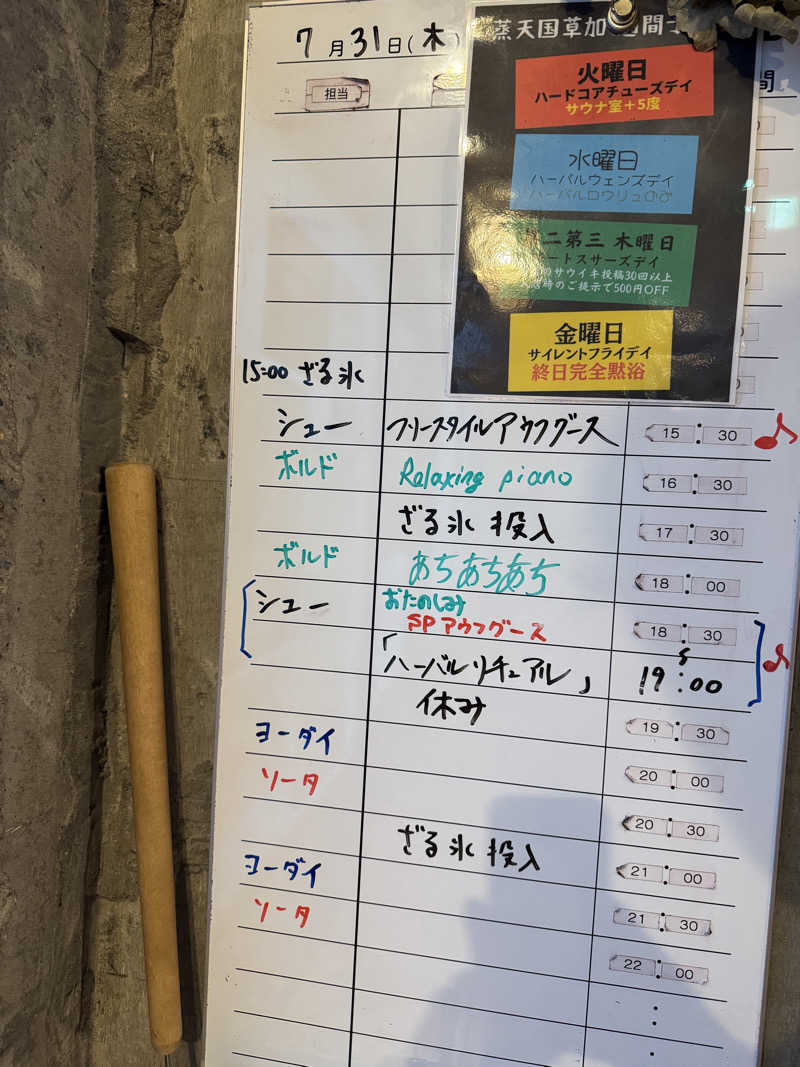 7月31日(木)
担当
間
蒸天国草加
火曜日
ハードコアチューズデイ
サウナ室+5度
水曜日
ハーバルウェンズデイ
ハーバルロウリュ
二第三 木曜日
ートスサーズデイ
のサウイキ投稿30回以上
時のご提示で500円OFF
金曜日
サイレントフライデイ
終日完全黙浴
15:00 ざる氷
シュー フリースタイルアウフグース 15:30
ボルド Relaxing piano 16:30
ざる氷 投入 17:30
ボルド あちあちあち 18:00
シュー おたのしみ
SPアウフグース 18:30
「ハーバルリチュアル」 19:00
休み
ヨーダイ 19:30
ソータ 20:00
20:30
ざる氷 投入
ヨーダイ 21:00
ソータ 21:30
22:00